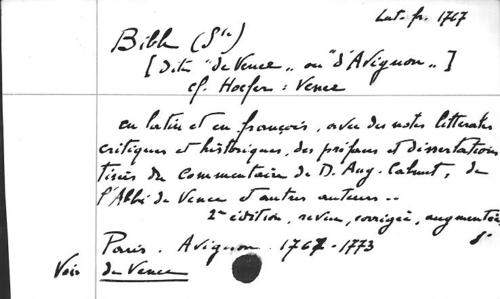 Lat. fr. 1767
Bible (Ste)
[Dite "de Vence" ou "d'Avignon"]
cf. Hoefer : Vence
en latin et en françois, avec des notes litterales
critiques et historiques, des préfaces et dissertations
tirées du commentaire de D. Aug. Calmet, de
l'Abbé de Vence et autres auteurs ..
2e édition, revue, corrigée, augmentée
Paris. Avignon. 1767-1773
Vois de Vence